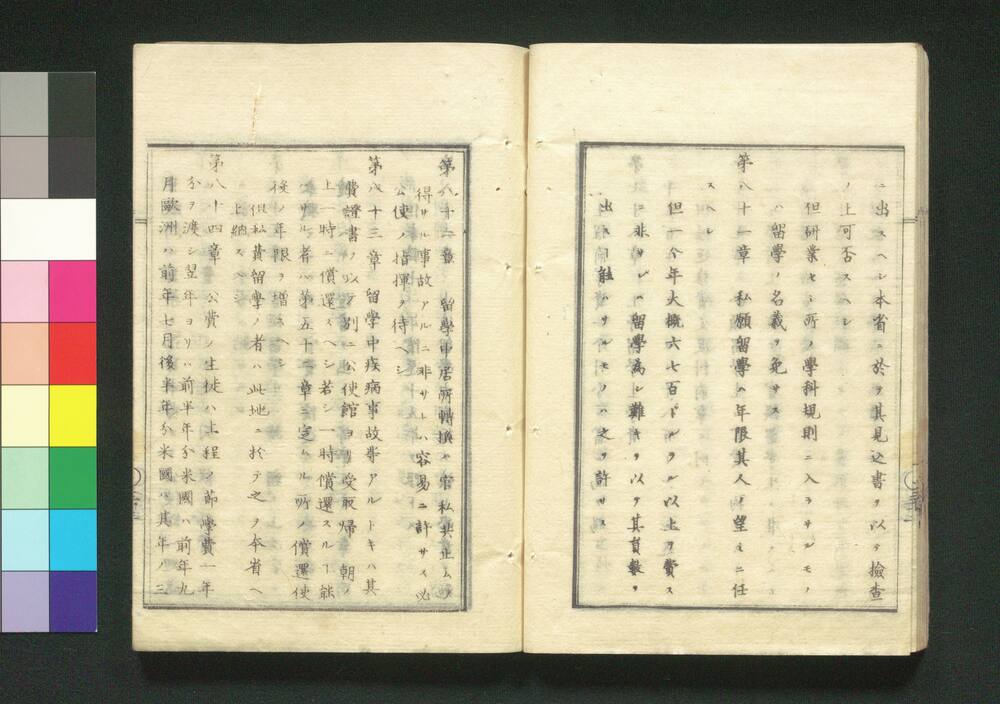 ニ出スヘシ本省ニ於テ其見込書ヲ以テ撿査
ノ上可否スヘシ
但研業セシ所ノ學科規則ニ入ラサルモノ
ハ留學ノ名義ヲ免サス
第八十一章 私願留學ハ年限其人ノ望ミニ任
スヘシ
但一今年大概六七百ドルラル以上ヲ費ス
ニ非サレハ留學為シ難キヲ以テ其員數ヲ
出ス能ハサルモノハ之ヲ許サス
第八十二章 留學中居所轉換ハ官私共止ムヲ
得サル事故アルニ非サレハ容易ニ許サス必
公使ノ指揮ヲ待ヘシ
第八十三章 留學中疾病事故等アルトキハ其
費證書ヲ以テ別ニ公使館ヨリ受取帰朝ノ
上一時ニ償還スヘシ若シ一時償還スルヿ能
ハサル者ハ第五十二章ニ定ムル所ノ償還使
後ノ年限ヲ増スヘシ
但私費留學ノ者ハ此地ニ於テ之ヲ本省ヘ
上納スヘシ
第八十四章 公費ノ生徒ハ上程ノ節學費一年
分ヲ渡シ翌年ヨリハ前半年分米國ハ前年九
月歐洲ハ前年七月後半年分米國ハ其年ノ三